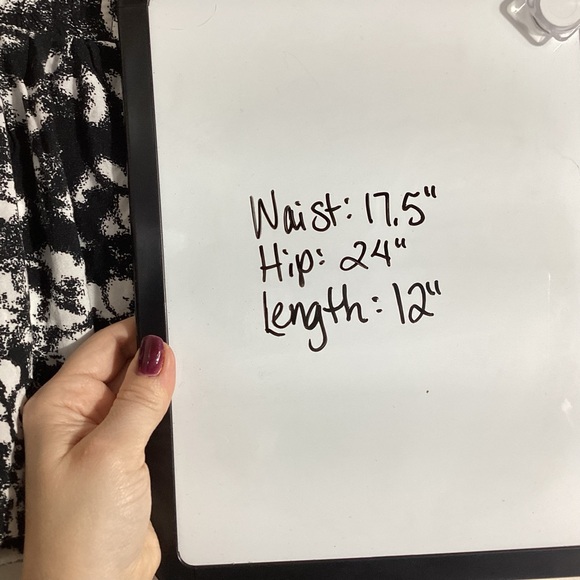 Waist: 17.5"
Hip: 24"
Length: 12"